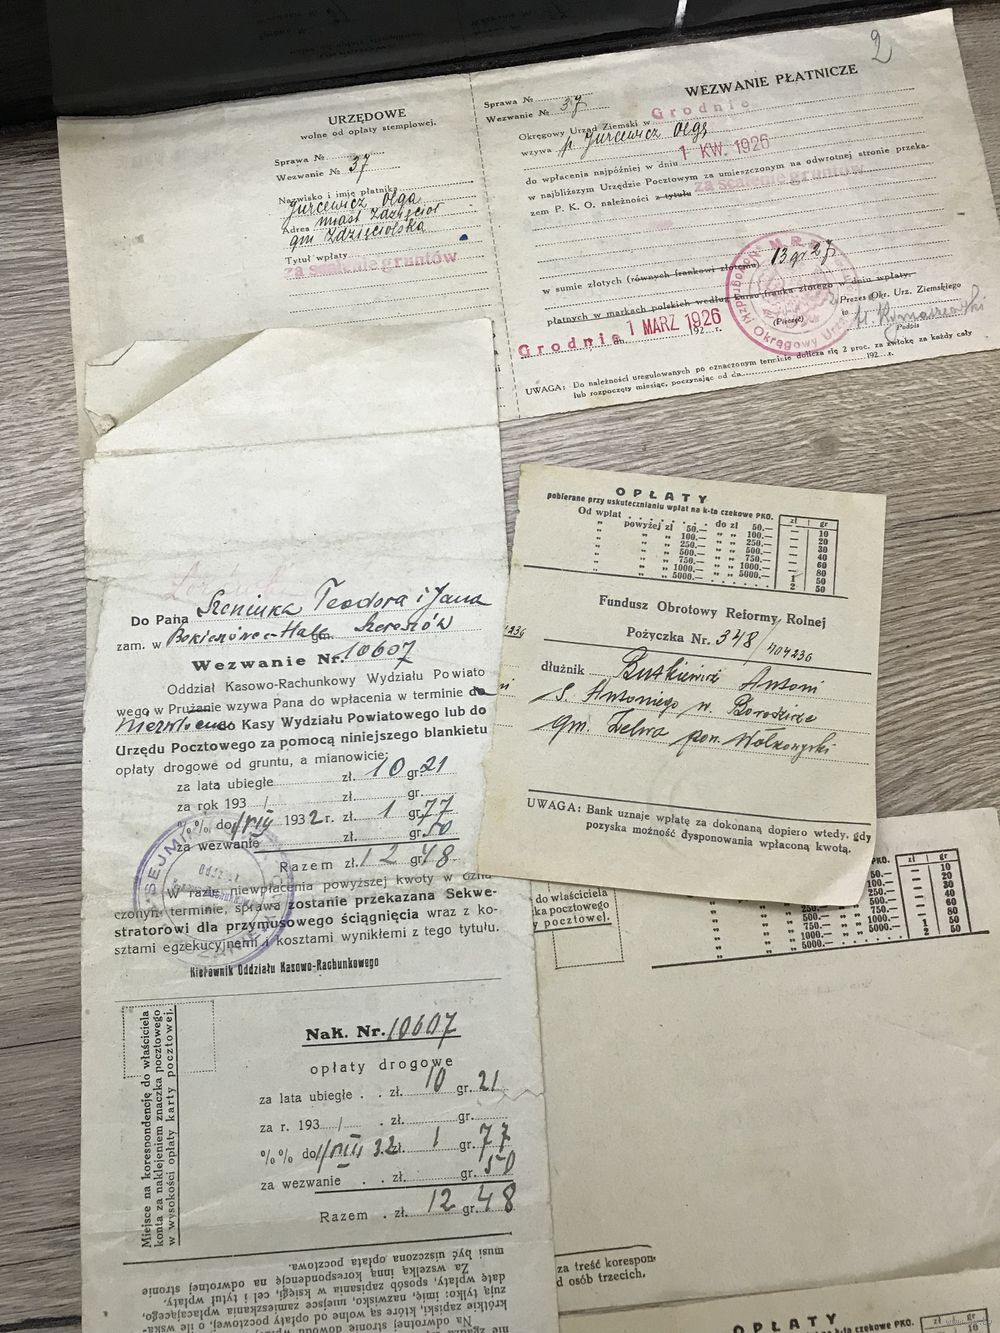 2
URZĘDOWE
wolne od opłaty stemplowej.
Sprawa №
Wezwanie № 37
Nazwisko i imię płatnika
Jurcewicz Olga
Adres miast Zdzięcioł
gm Zdzięciolska
Tytuł wpłaty
za scalenie gruntów
WEZWANIE PŁATNICZE
Sprawa №
Wezwanie № 37
Okręgowy Urząd Ziemski w Grodnie
wzywa p. Jurcewicz Olgę
do wpłacenia najpóźniej w dniu 1 KW. 1926
w najbliższym Urzędzie Pocztowym za umieszczonym na odwrotnej stronie przeka-
zem P. K. O. należności z tytułu za scalenie gruntów
w sumie złotych (równych frankowi złotemu) 13 gr 27
płatnych w markach polskich według kursu franka złotego w dniu wpłaty.
Grodnie dn. 1 MARZ 1926 192 r.
(Pieczęć)
Prezes Okr. Urz. Ziemskiego
Podpis
UWAGA: Do należności uregulowanych po oznaczonym terminie dolicza się 2 proc. za zwłokę za każdy cały
lub rozpoczęty miesiąc, poczynając od dn. 192 r.
Do Pana Szeniuka Teodora i Jana
zam. w gm. Szereszów
Wezwanie Nr. 10607
Oddział Kasowo-Rachunkowy Wydziału Powiato
wego w Prużanie wzywa Pana do wpłacenia w terminie do
Kasy Wydziału Powiatowego lub do
Urzędu Pocztowego za pomocą niniejszego blankietu
opłaty drogowe od gruntu, a mianowicie:
za lata ubiegłe zł. 10 gr. 21
za rok 193 / zł. gr.
%% do 1/VII 1932 r. zł. 1 gr. 77
za wezwanie zł. gr. 50
Razem zł. 12 gr. 48
W razie niewpłacenia powyższej kwoty w ozna-
czonym terminie, sprawa zostanie przekazana Sekwe-
stratorowi dla przymusowego ściągnięcia wraz z ko-
sztami egzekucyjnemi i kosztami wynikłemi z tego tytułu.
Kierownik Oddziału Kasowo-Rachunkowego
Miejsce na korespondencję do właściciela
konta za naklejeniem znaczka pocztowego
w wysokości opłaty karty pocztowej.
Nak. Nr. 10607
opłaty drogowe
za lata ubiegłe . . zł. 10 gr. 21
za r. 193 / . zł. gr.
%% do 1/VII 32 zł. 1 gr. 77
za wezwanie . . zł. gr. 50
Razem . zł. 12 gr. 48
Na odwrotnej stronie dowodu
krótkie zapiski, które są wolne od opłaty pocztowej, o ile wska-
zują tylko: imię, nazwisko, miejsce zamieszkania wpłacającego,
datę wpłaty, sposób zapisania w księgi, cel i tytuł wpłaty.
Za wszelką inną korespondencję na odwrotnej stronie
musi być uiszczona opłata pocztowa.
OPŁATY
pobierane przy uskutecznianiu wpłat na k-ta czekowe PKO.
zł gr
Od wpłat . . . do zł 50.— — 10
" powyżej zł 50.— " " 100.— — 20
" " " 100.— " " 250.— — 30
" " " 250.— " " 500.— — 40
" " " 500.— " " 750.— — 60
" " " 750.— " " 1000.— — 80
" " " 1000.— " " 5000.— 1 50
" " " 5000.— . . . 2 50
Fundusz Obrotowy Reformy Rolnej
Pożyczka Nr. 348/704236
dłużnik Butkiewicz Antoni
s. Antoniego w.
gm. Zelwa pow. Wołkowyski
UWAGA: Bank uznaje wpłatę za dokonaną dopiero wtedy, gdy
pozyska możność dysponowania wpłaconą kwotą.
PKO. zł gr
do właściciela
ka pocztowego
y pocztowej.
50.— — 10
100.— — 20
250.— — 30
500.— — 40
750.— — 60
1000.— — 80
5000.— 1 50
2 50
za treść korespon-
d osób trzecich.
OPŁATY
zł gr
10